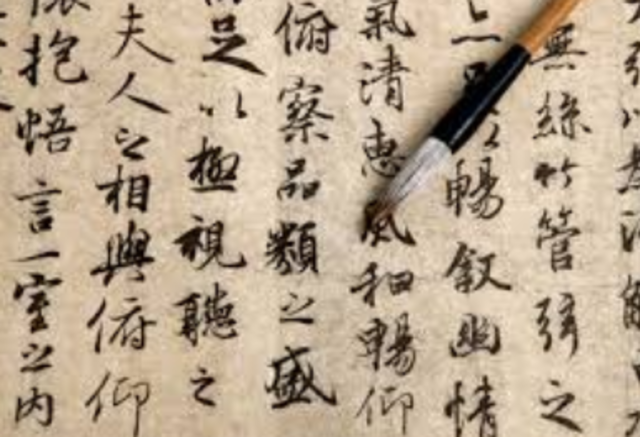 無絲竹管弦之
暢叙幽情
氣清惠風和暢仰
俯察品類之盛
足以極視聽之
夫人之相與俯仰
懷抱悟言一室之内